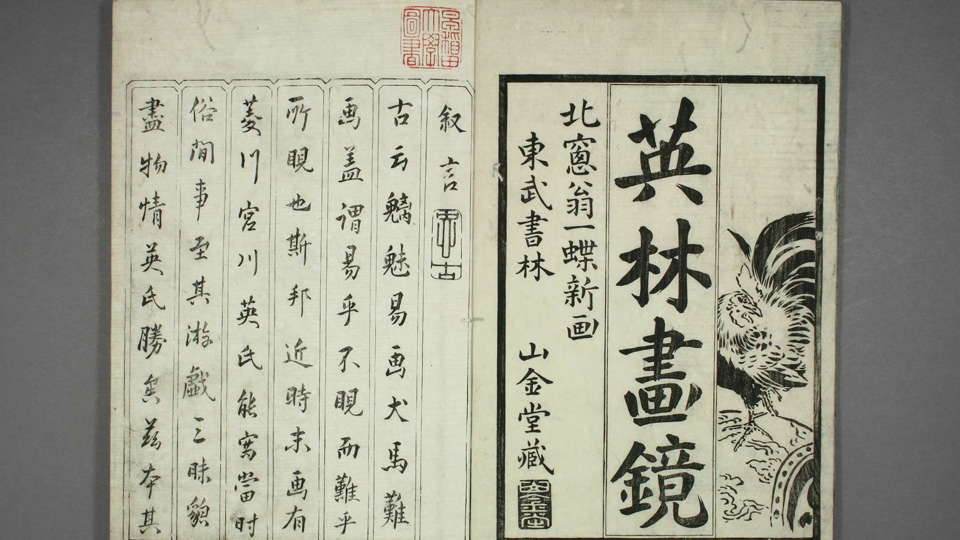 英林畫鏡
北窻翁一蝶新画
東武書林 山金堂藏
早稲田大學圖書
叙言
古云魑魅易画犬馬難
画盖謂易乎不睍而難乎
所睍也斯邦近時末画有
菱川宮川英氏能寫當时
俗間事至其游戲三昧貌
盡物情英氏勝矣茲本其